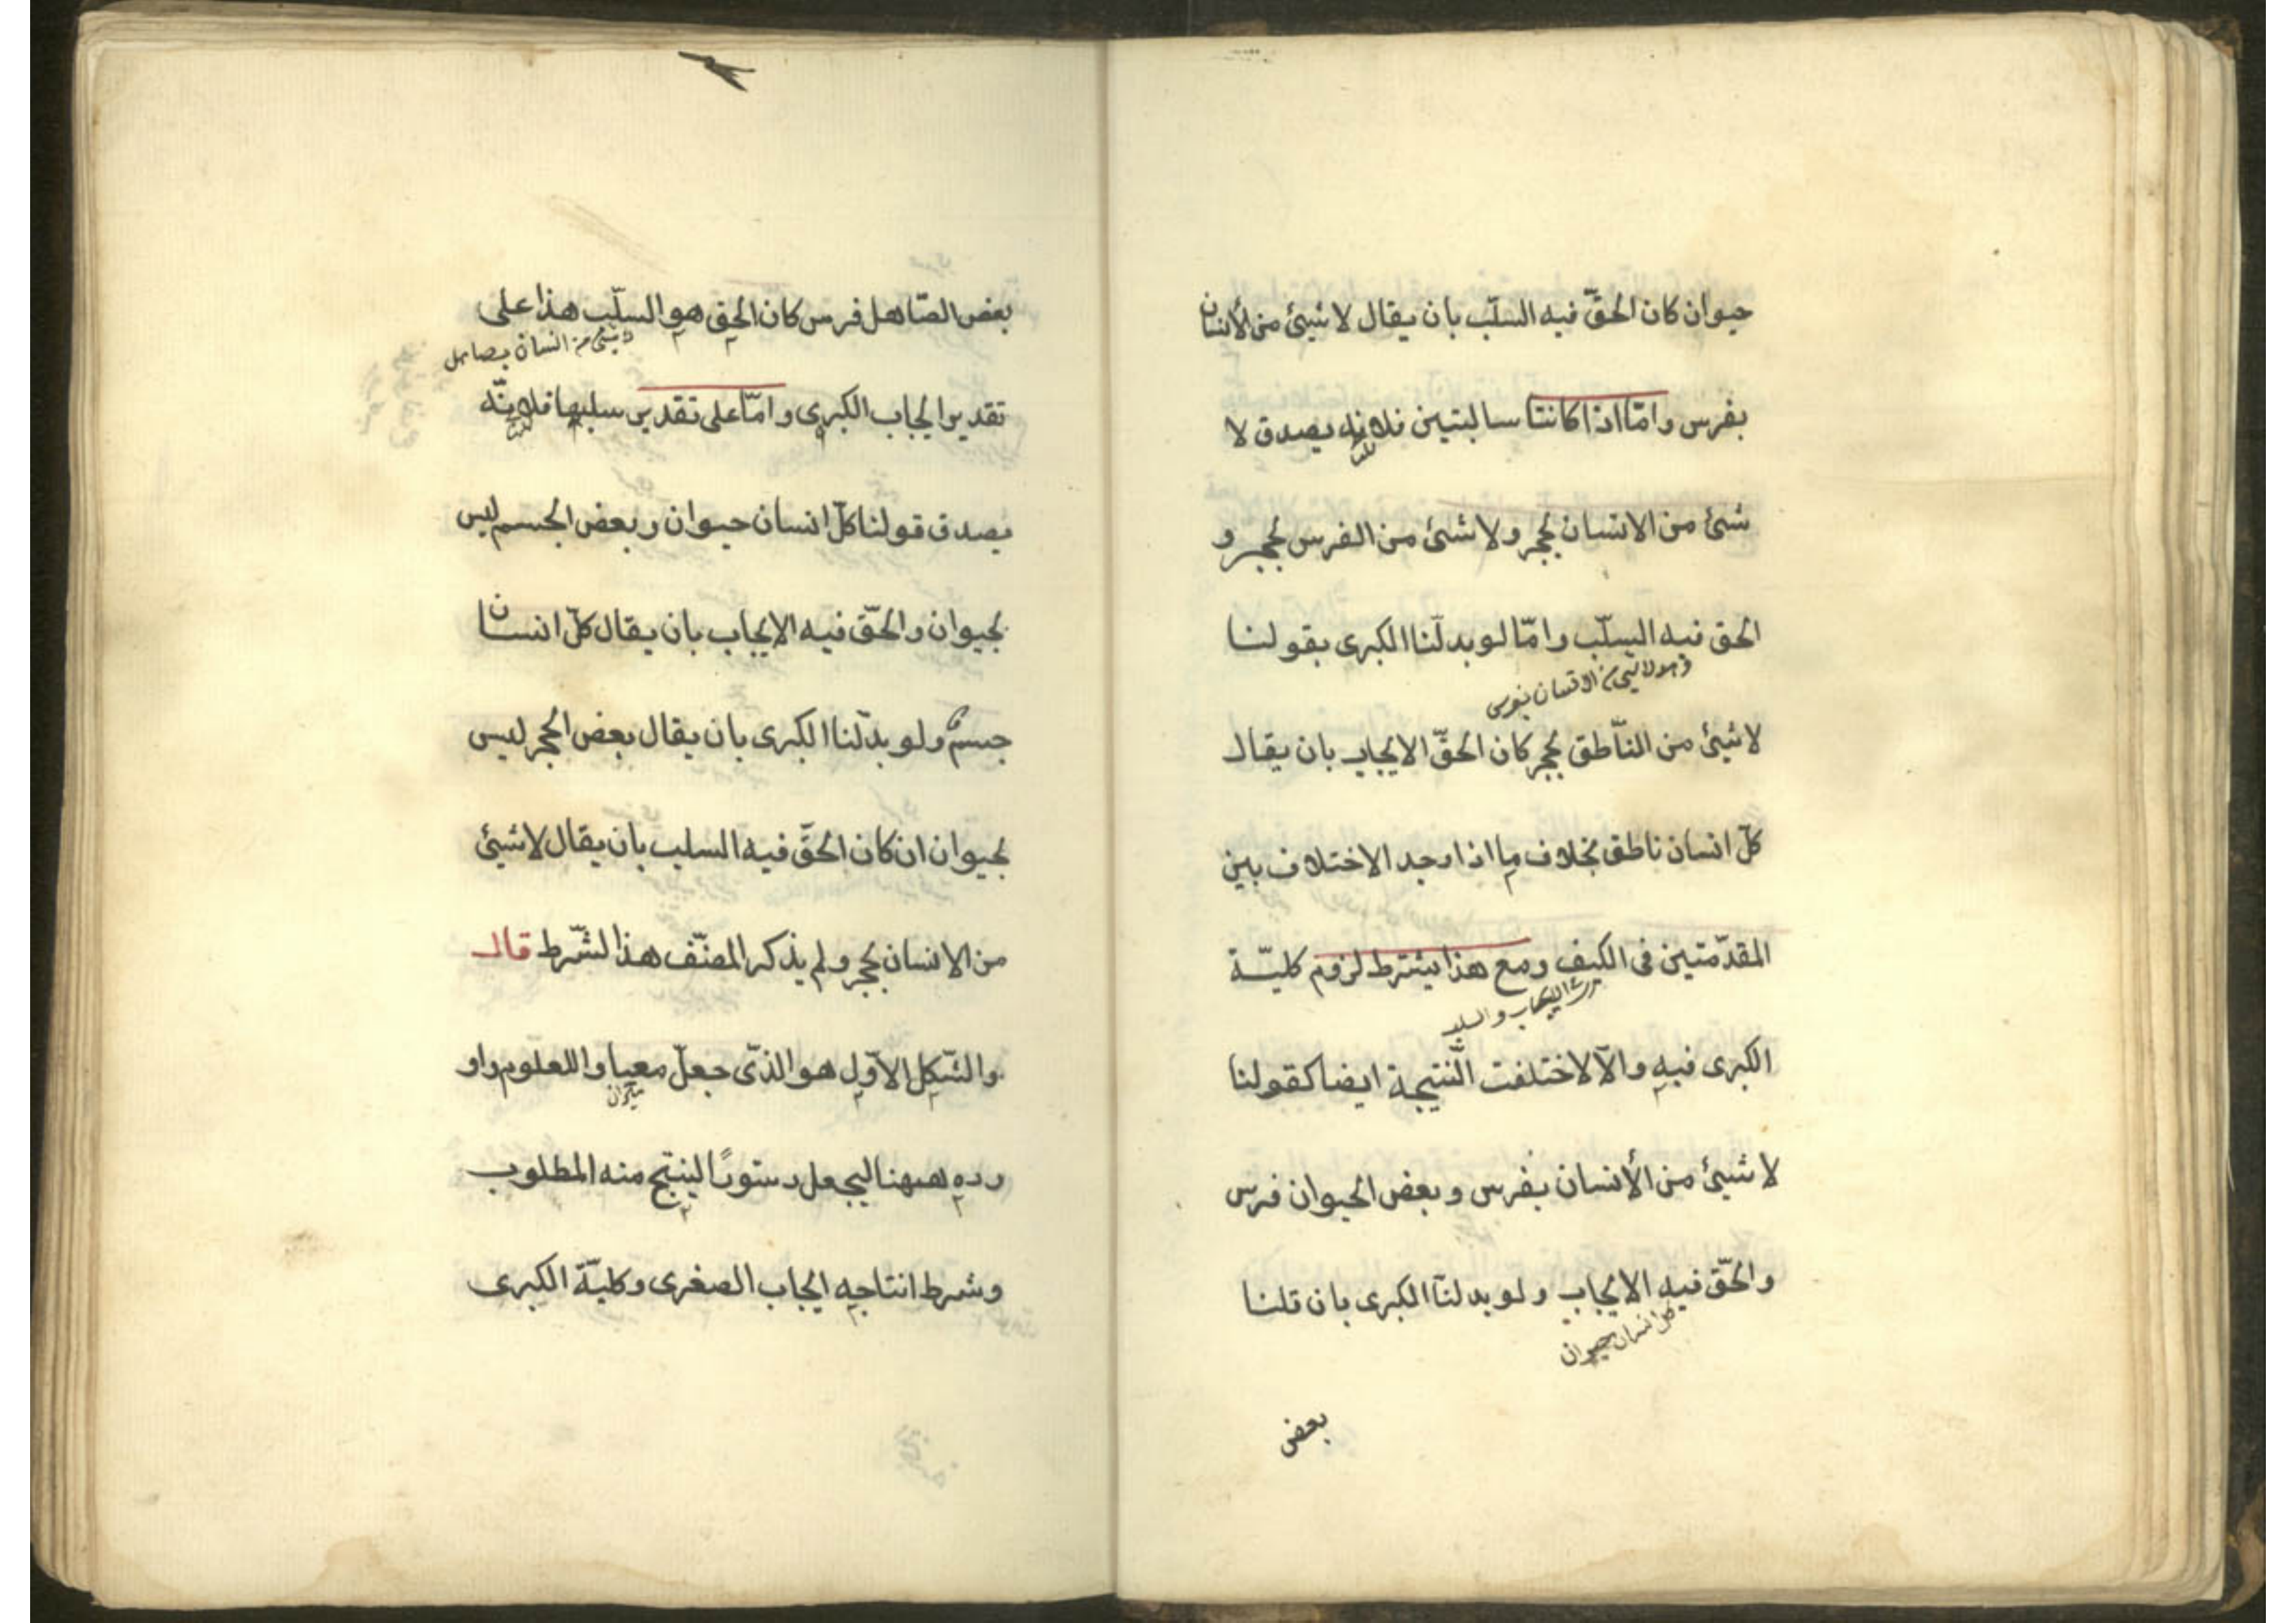 حيوان كان الحقّ فيه السلب بان يقال لا شيئ من الأنسان
بفرس وامّا اذا كانتا سالبتين فلانه يصدق لا
شئ من الانسان بحجر ولا شئ من الفرس بحجر و
الحق فيه السلب وامّا لو بدلنا الكبرى بقولنا
وهو لا شئ من الانسان بفرس
لا شيئ من النّاطق بحجر كان الحقّ الايجاب بان يقال
كلّ انسان ناطق بخلاف ما اذا وجد الاختلاف بين
المقدّمتين فى الكيف ومع هذا يشترط لزوم كليّة
الايجاب والسلب
الكبرى فيه والّا لاختلفت النّتيجة ايضا كقولنا
لا شيئ من الأنسان بفرس وبعض الحيوان فرس
والحقّ فيه الايجاب ولو بدلنا الكبرى بان قلنا
كل انسان حيوان
بعض
بعض الصّاهل فرس كان الحق هو السلب هذا على
شئ من انسان بصاهل
تقدير ايجاب الكبرى وامّا على تقدير سلبها فلانّه
يصدق قولنا كلّ انسان حيوان وبعض الجسم ليس
بحيوان والحقّ فيه الايجاب بان يقال كلّ انسان
جسم ولو بدّلنا الكبرى بان يقال بعض الحجر ليس
بحيوان ان كان الحقّ فيه السلب بان يقال لا شيئ
من الانسان بحجر ولم يذكر المصنّف هذا لشّرط قال
والشّكل الاوّل هو الذّى جعل معيا واللعلوم واو
ميزان
رده ههنا ليجعل دستورًا لينتج منه المطلوب
وشرط انتاجه ايجاب الصغرى وكليّة الكبرى